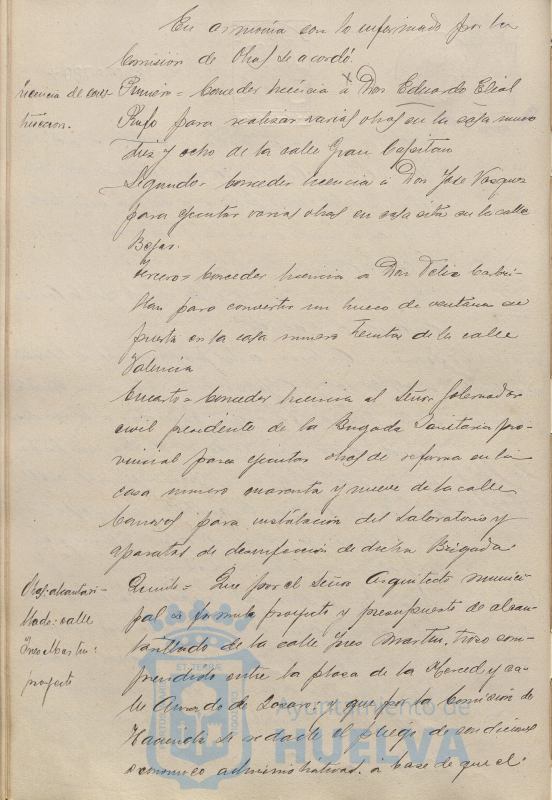 En armonia con lo informado por la
Comision de Obras se acordó.
licencia de cons-
truccion.
Primero = Conceder licencia á Don Eduardo
Rufo para realizar varias obras en la casa numero
Trez y ocho de la calle Gran Capitan
Segundo = Conceder licencia á Don José Vazquez
para ejecutar varias obras en casa sita en la calle
Bejar.
Tercero = Conceder licencia á Don Felix
para convertir un hueco de ventana en
puerta en la casa numero treinta de la calle
Valencia
Cuarto = Conceder licencia al Señor Gobernador
civil presidente de la Brigada Sanitaria pro-
vincial para ejecutar obras de reforma en la
casa numero cuarenta y nueve de la calle
Canovas para instalación del Laboratorio y
aparatos de desinfeccion de dicha Brigada.
Obras alcantari-
llado: calle
Ines Martin:
proyecto
Quinto = Que por el Señor Arquitecto munici-
pal se formule proyecto y presupuesto de alcan-
tarillado de la calle Ines Martin, trozo com-
prendido entre la plaza de la Merced y ca-
lle Amado de Lazaro, y que por la Comision de
Hacienda se redacte el pliego de condiciones
economico administrativas, á base de que el
Ayuntamiento de
HUELVA